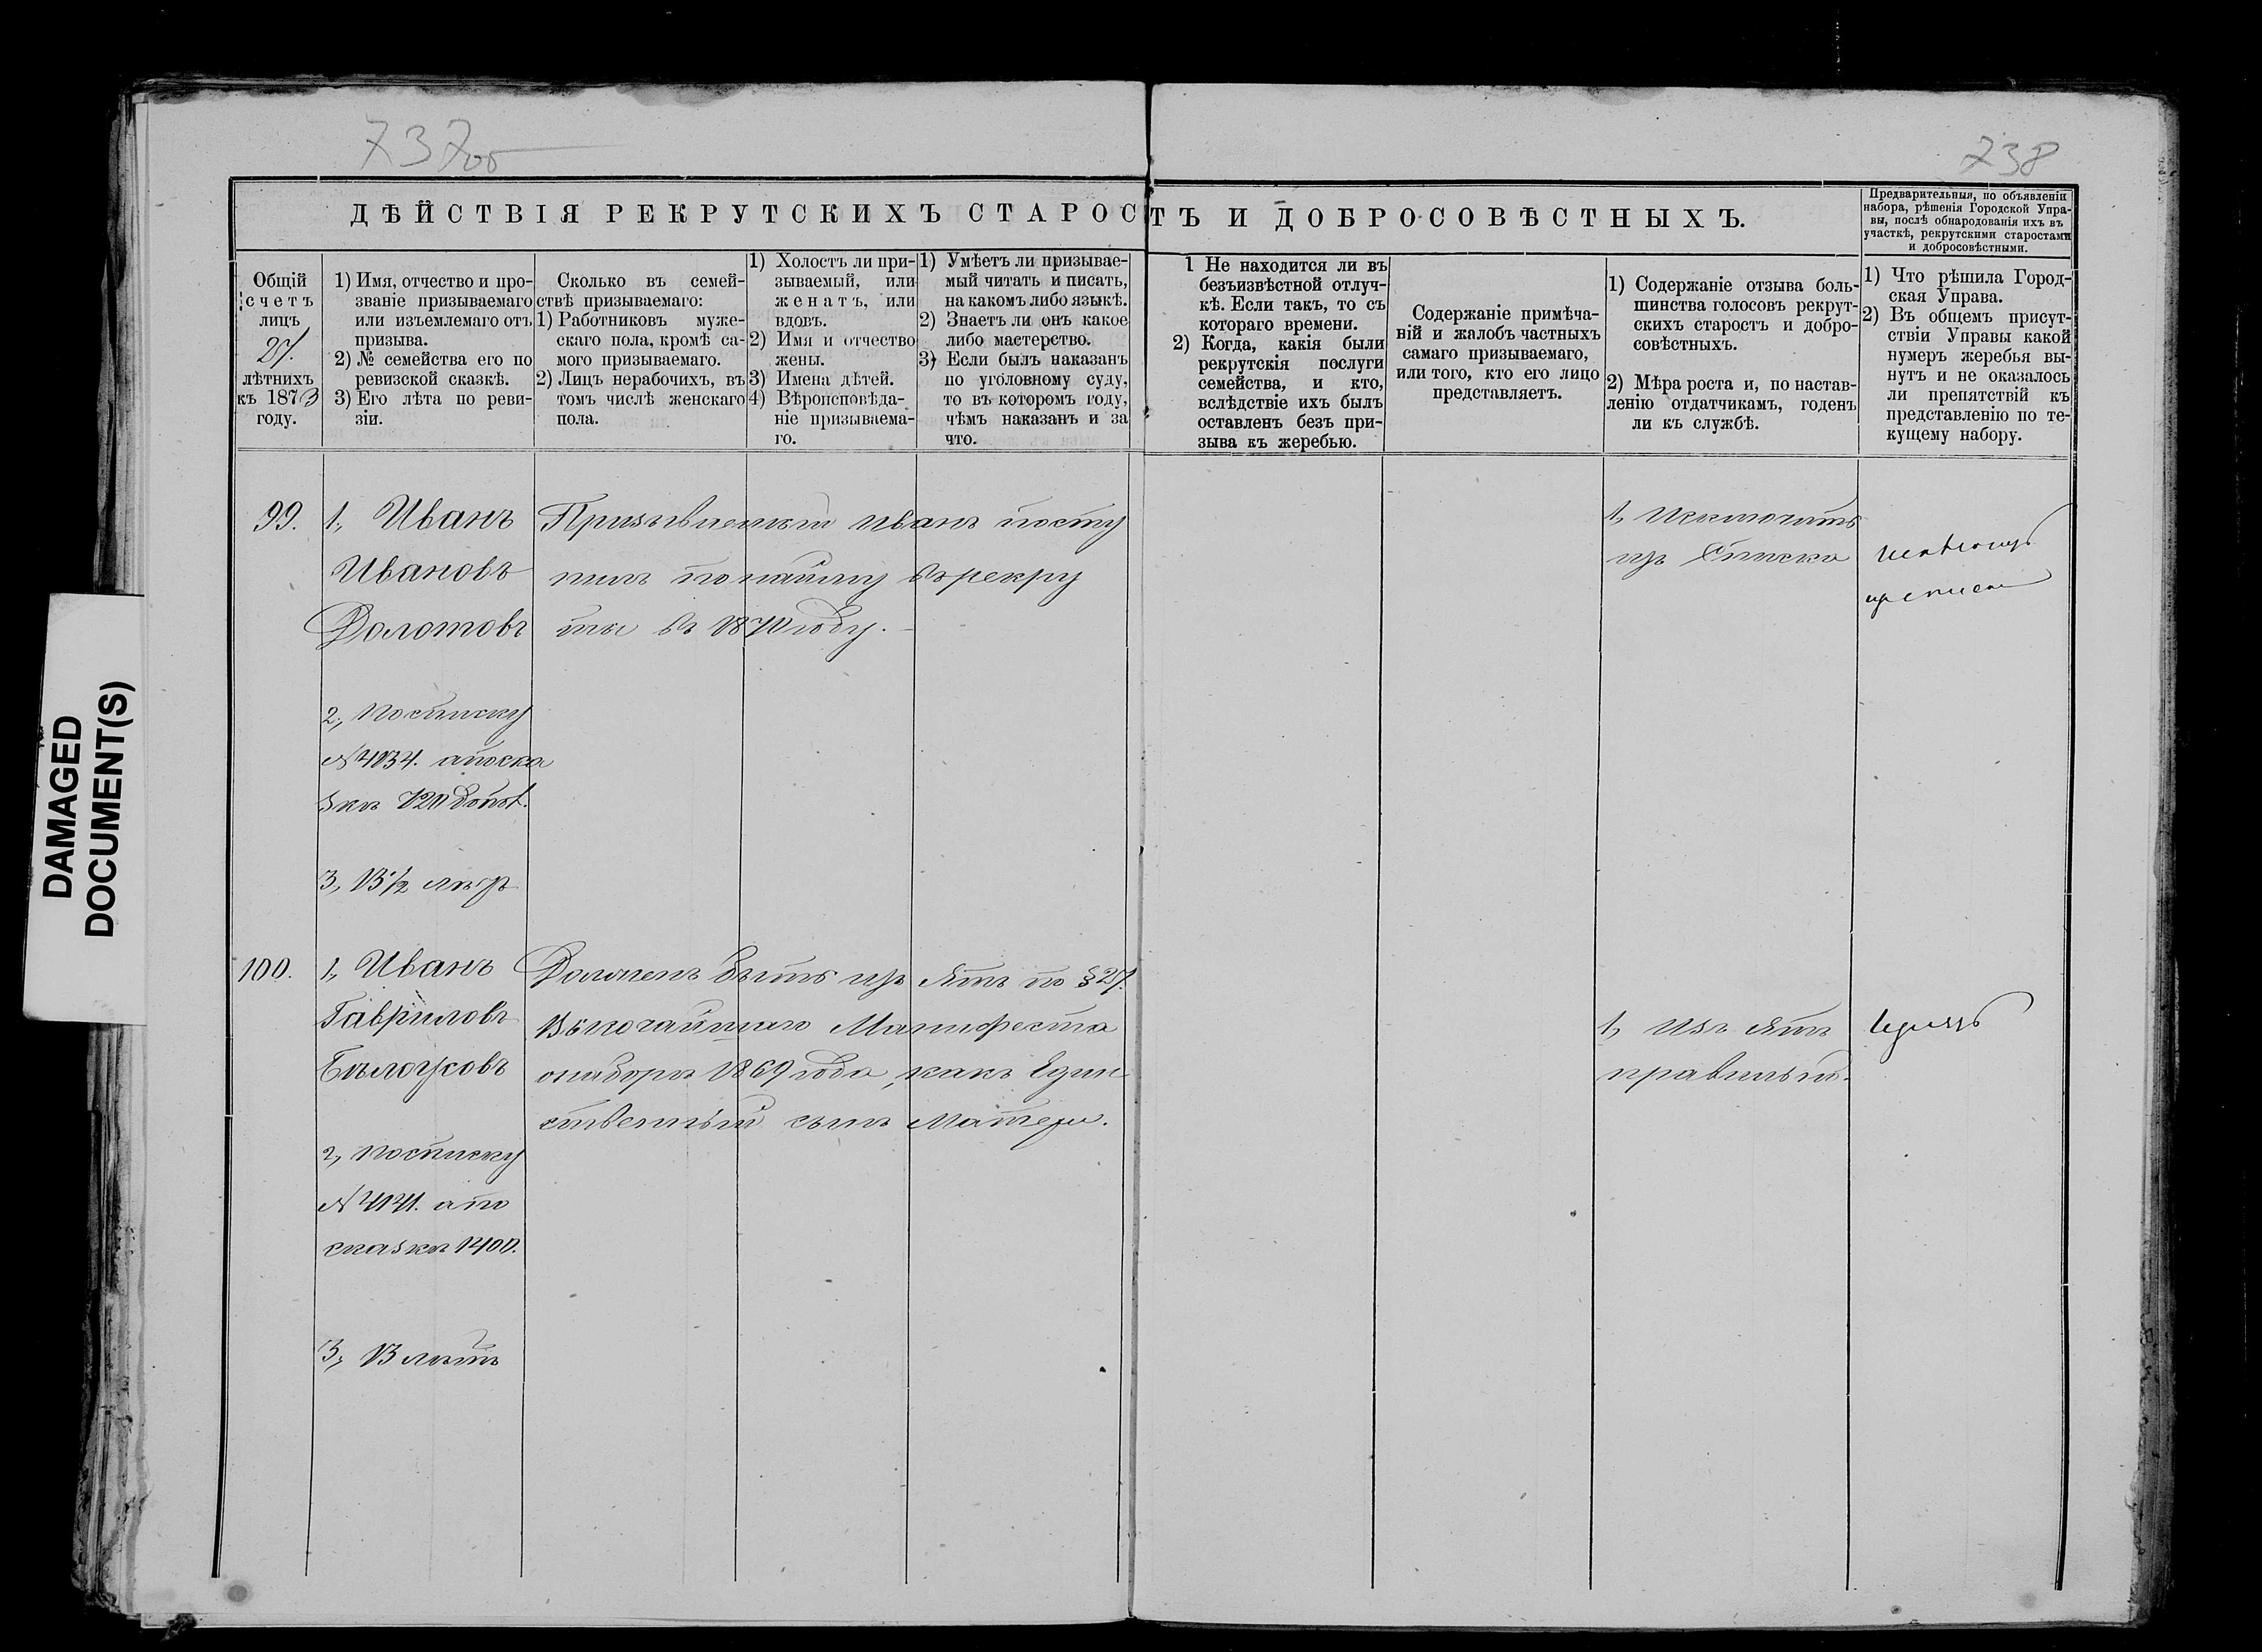 737об
738
ДѢЙСТВІЯ РЕКРУТСКИХЪ СТАРОСТЪ И ДОБРОСОВѢСТНЫХЪ.
Предварительныя, по объявленіи
набора, рѣшенія Городской Упра-
вы, послѣ обнародованія ихъ въ
участкѣ, рекрутскими старостами
и добросовѣстными.
Общій
счетъ
лицъ
27.
лѣтнихъ
къ 1873
году.
1) Имя, отчество и про-
званіе призываемаго
или изъемлемаго отъ
призыва.
2) № семейства его по
ревизской сказкѣ.
3) Его лѣта по реви-
зіи.
Сколько въ семей-
ствѣ призываемаго:
1) Работниковъ муже-
скаго пола, кромѣ са-
мого призываемаго.
2) Лицъ нерабочихъ, въ
томъ числѣ женскаго
пола.
1) Холостъ ли при-
зываемый, или
женатъ, или
вдовъ.
2) Имя и отчество
жены.
3) Имена дѣтей.
4) Вѣроисповѣда-
ніе призываема-
го.
1) Умѣетъ ли призывае-
мый читать и писать,
на какомъ либо языкѣ.
2) Знаетъ ли онъ какое
либо мастерство.
3) Если былъ наказанъ
по уголовному суду,
то въ которомъ году,
чѣмъ наказанъ и за
что.
1 Не находится ли въ
безъизвѣстной отлуч-
кѣ. Если такъ, то съ
котораго времени.
2) Когда, какія были
рекрутскія послуги
семейства, и кто,
вслѣдствіе ихъ былъ
оставленъ безъ при-
зыва къ жеребью.
Содержаніе примѣча-
ній и жалобъ частныхъ
самаго призываемаго,
или того, кто его лицо
представляетъ.
1) Содержаніе отзыва боль-
шинства голосовъ рекрут-
скихъ старостъ и добро-
совѣстныхъ.
2) Мѣра роста и, по настав-
ленію отдатчикамъ, годенъ
ли къ службѣ.
1) Что рѣшила Город-
ская Управа.
2) Въ общемъ присут-
ствіи Управы какой
нумеръ жеребья вы-
нутъ и не оказалось
ли препятствій къ
представленію по те-
кущему набору.
99.
1, Иванъ
Ивановъ
Долотовъ
2, по списку
№ 4134. а по ска
зкѣ 1210 допол.
3, 13 1/2 лѣтъ
Призываемый Иванъ посту
пилъ по найму въ рекру
ты въ 1870 году.
1, Исключить
изъ Списка
изъ списка
100.
1, Иванъ
Гавриловъ
Бѣлоусовъ
2, по списку
№ 4141. а по
сказкѣ 1400.
3, 13 лѣтъ
Долженъ быть изъ ятъ по § 27.
Высочайшаго Манифеста
о наборѣ 1869 года, какъ Един
ственный сынъ Матери.
1, Изъ ятъ
правильно.
DAMAGED
DOCUMENT(S)